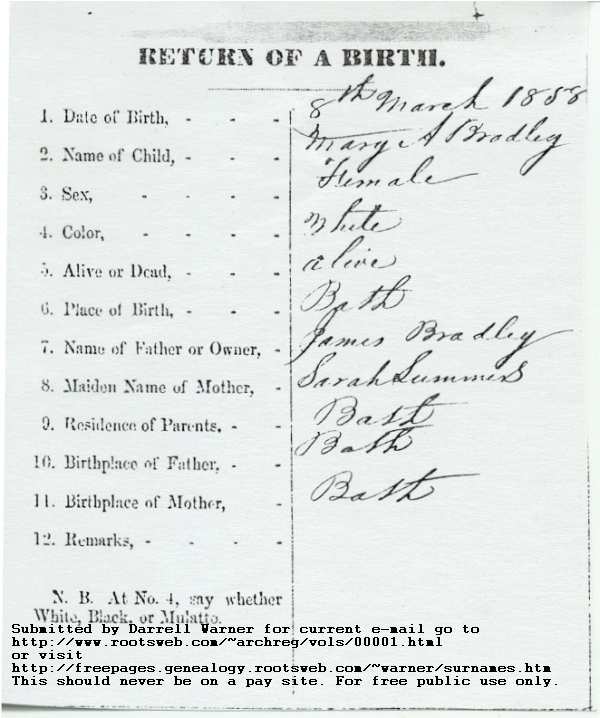 RETURN OF A BIRTH.
1. Date of Birth, - - - 8th March 1858
2. Name of Child, - - - Mary A Bradley
3. Sex, - - - - Female
4. Color, - - - - White
5. Alive or Dead, - - - alive
6. Place of Birth, - - - Bath
7. Name of Father or Owner, - James Bradley
8. Maiden Name of Mother, - Sarah Summers
9. Residence of Parents, - - Bath
10. Birthplace of Father, - - Bath
11. Birthplace of Mother, - Bath
12. Remarks, - - - -
N. B. At No. 4, say whether
White, Black, or Mulatto.
Submitted by Darrell Warner for current e-mail go to
http://www.rootsweb.com/~archreg/vols/00001.html
or visit
http://freepages.genealogy.rootsweb.com/~warner/surnames.htm
This should never be on a pay site. For free public use only.